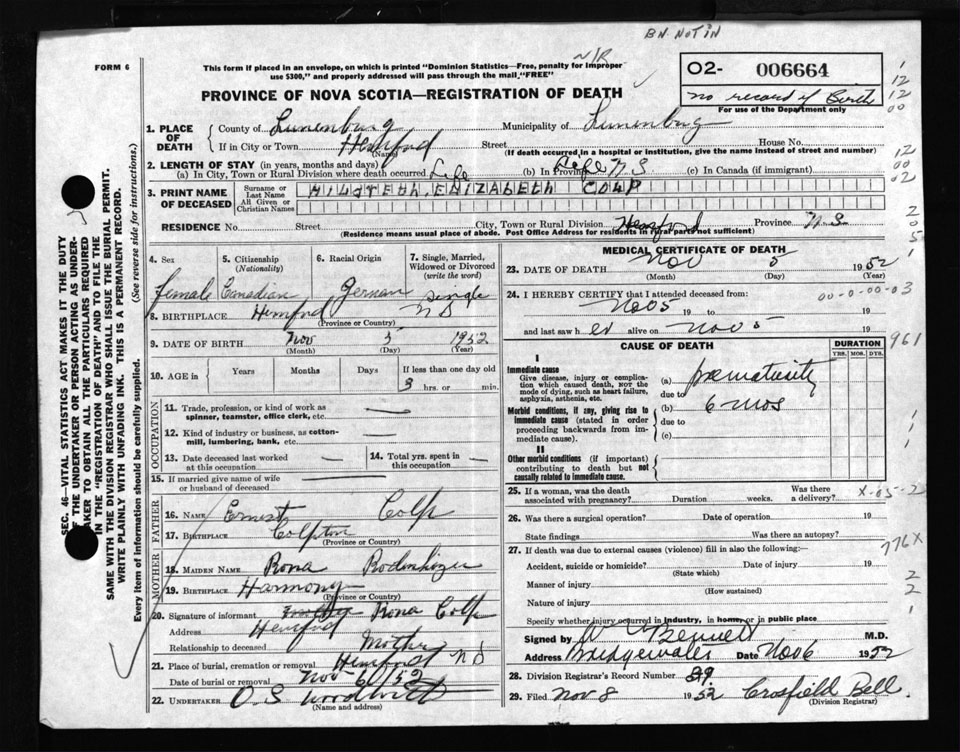 BN NOT IN
N/R
FORM 6
This form if placed in an envelope, on which is printed "Dominion Statistics—Free, penalty for improper
use $300," and properly addressed will pass through the mail "FREE"
PROVINCE OF NOVA SCOTIA—REGISTRATION OF DEATH
02- 006664
no record of Birth
For use of the Department only
1. PLACE OF DEATH County of Lunenburg Municipality of Lunenburg
If in City or Town Hemford Street House No.
(Name) (If death occurred in a hospital or institution, give the name instead of street and number)
2. LENGTH OF STAY (in years, months and days)
(a) In City, Town or Rural Division where death occurred Life (b) In Province Life N S (c) In Canada (if immigrant)
3. PRINT NAME OF DECEASED Surname or Last Name ELIZABETH COLP
All Given or Christian Names
RESIDENCE No. Street City, Town or Rural Division Hemford Province N.S.
(Residence means usual place of abode. Post Office Address for residents in rural parts not sufficient)
4. Sex 5. Citizenship (Nationality) 6. Racial Origin 7. Single, Married, Widowed or Divorced (write the word)
female Canadian German Single
8. BIRTHPLACE Hemford N S
(Province or Country)
9. DATE OF BIRTH Nov 5 1952
(Month) (Day) (Year)
10. AGE in Years Months Days If less than one day old
3 hrs. or min.
OCCUPATION
11. Trade, profession, or kind of work as spinner, teamster, office clerk, etc.
12. Kind of industry or business, as cotton-mill, lumbering, bank, etc.
13. Date deceased last worked at this occupation 14. Total yrs. spent in this occupation
15. If married give name of wife or husband of deceased
FATHER
16. Name Ernest Colp
17. Birthplace Colpton
(Province or Country)
MOTHER
18. Maiden Name Rona Rodenhizer
19. Birthplace Harmony
(Province or Country)
20. Signature of informant Rona Colp
Address Hemford
Relationship to deceased Mother
21. Place of burial, cremation or removal Hemford N S
Date of burial or removal Nov 6/52
22. Undertaker O.S.
(Name and address)
MEDICAL CERTIFICATE OF DEATH
23. DATE OF DEATH Nov 5 1952
(Month) (Day) (Year)
24. I HEREBY CERTIFY that I attended deceased from: 00-0-00-03
Nov 5 19 to 19
and last saw her alive on Nov 5
961
CAUSE OF DEATH DURATION
YRS. MOS. DYS.
I
Immediate cause
Give disease, injury or complication which caused death, NOT the mode of dying, such as heart failure, asphyxia, asthenia, etc.
(a) prematurity
due to
(b) 6 mos
Morbid conditions, if any, giving rise to immediate cause (stated in order proceeding backwards from immediate cause).
due to
(c)
II
Other morbid conditions (if important) contributing to death but not causally related to immediate cause.
25. If a woman, was the death associated with pregnancy? Duration weeks. Was there a delivery? X-05-2
26. Was there a surgical operation? Date of operation 19
State findings Was there an autopsy?
776X
27. If death was due to external causes (violence) fill in also the following:—
Accident, suicide or homicide? Date of injury 19
(State which)
Manner of injury
(How sustained)
Nature of injury
Specify whether injury occurred in Industry, in home, or in public place
Signed by W Bennett M.D.
Address Bridgewater Date Nov 6 1952
28. Division Registrar's Record Number 29.
29. Filed Nov 8 1952 Crosfield Bell.
(Division Registrar)
SEC. 46—VITAL STATISTICS ACT MAKES IT THE DUTY
OF THE UNDERTAKER OR PERSON ACTING AS UNDER-
TAKER TO OBTAIN ALL THE PARTICULARS REQUIRED
IN THE "REGISTRATION OF DEATH" AND TO FILE THE
SAME WITH THE DIVISION REGISTRAR WHO SHALL ISSUE THE BURIAL PERMIT.
WRITE PLAINLY WITH UNFADING INK. THIS IS A PERMANENT RECORD.
Every item of information should be carefully supplied. (See reverse side for instructions.)